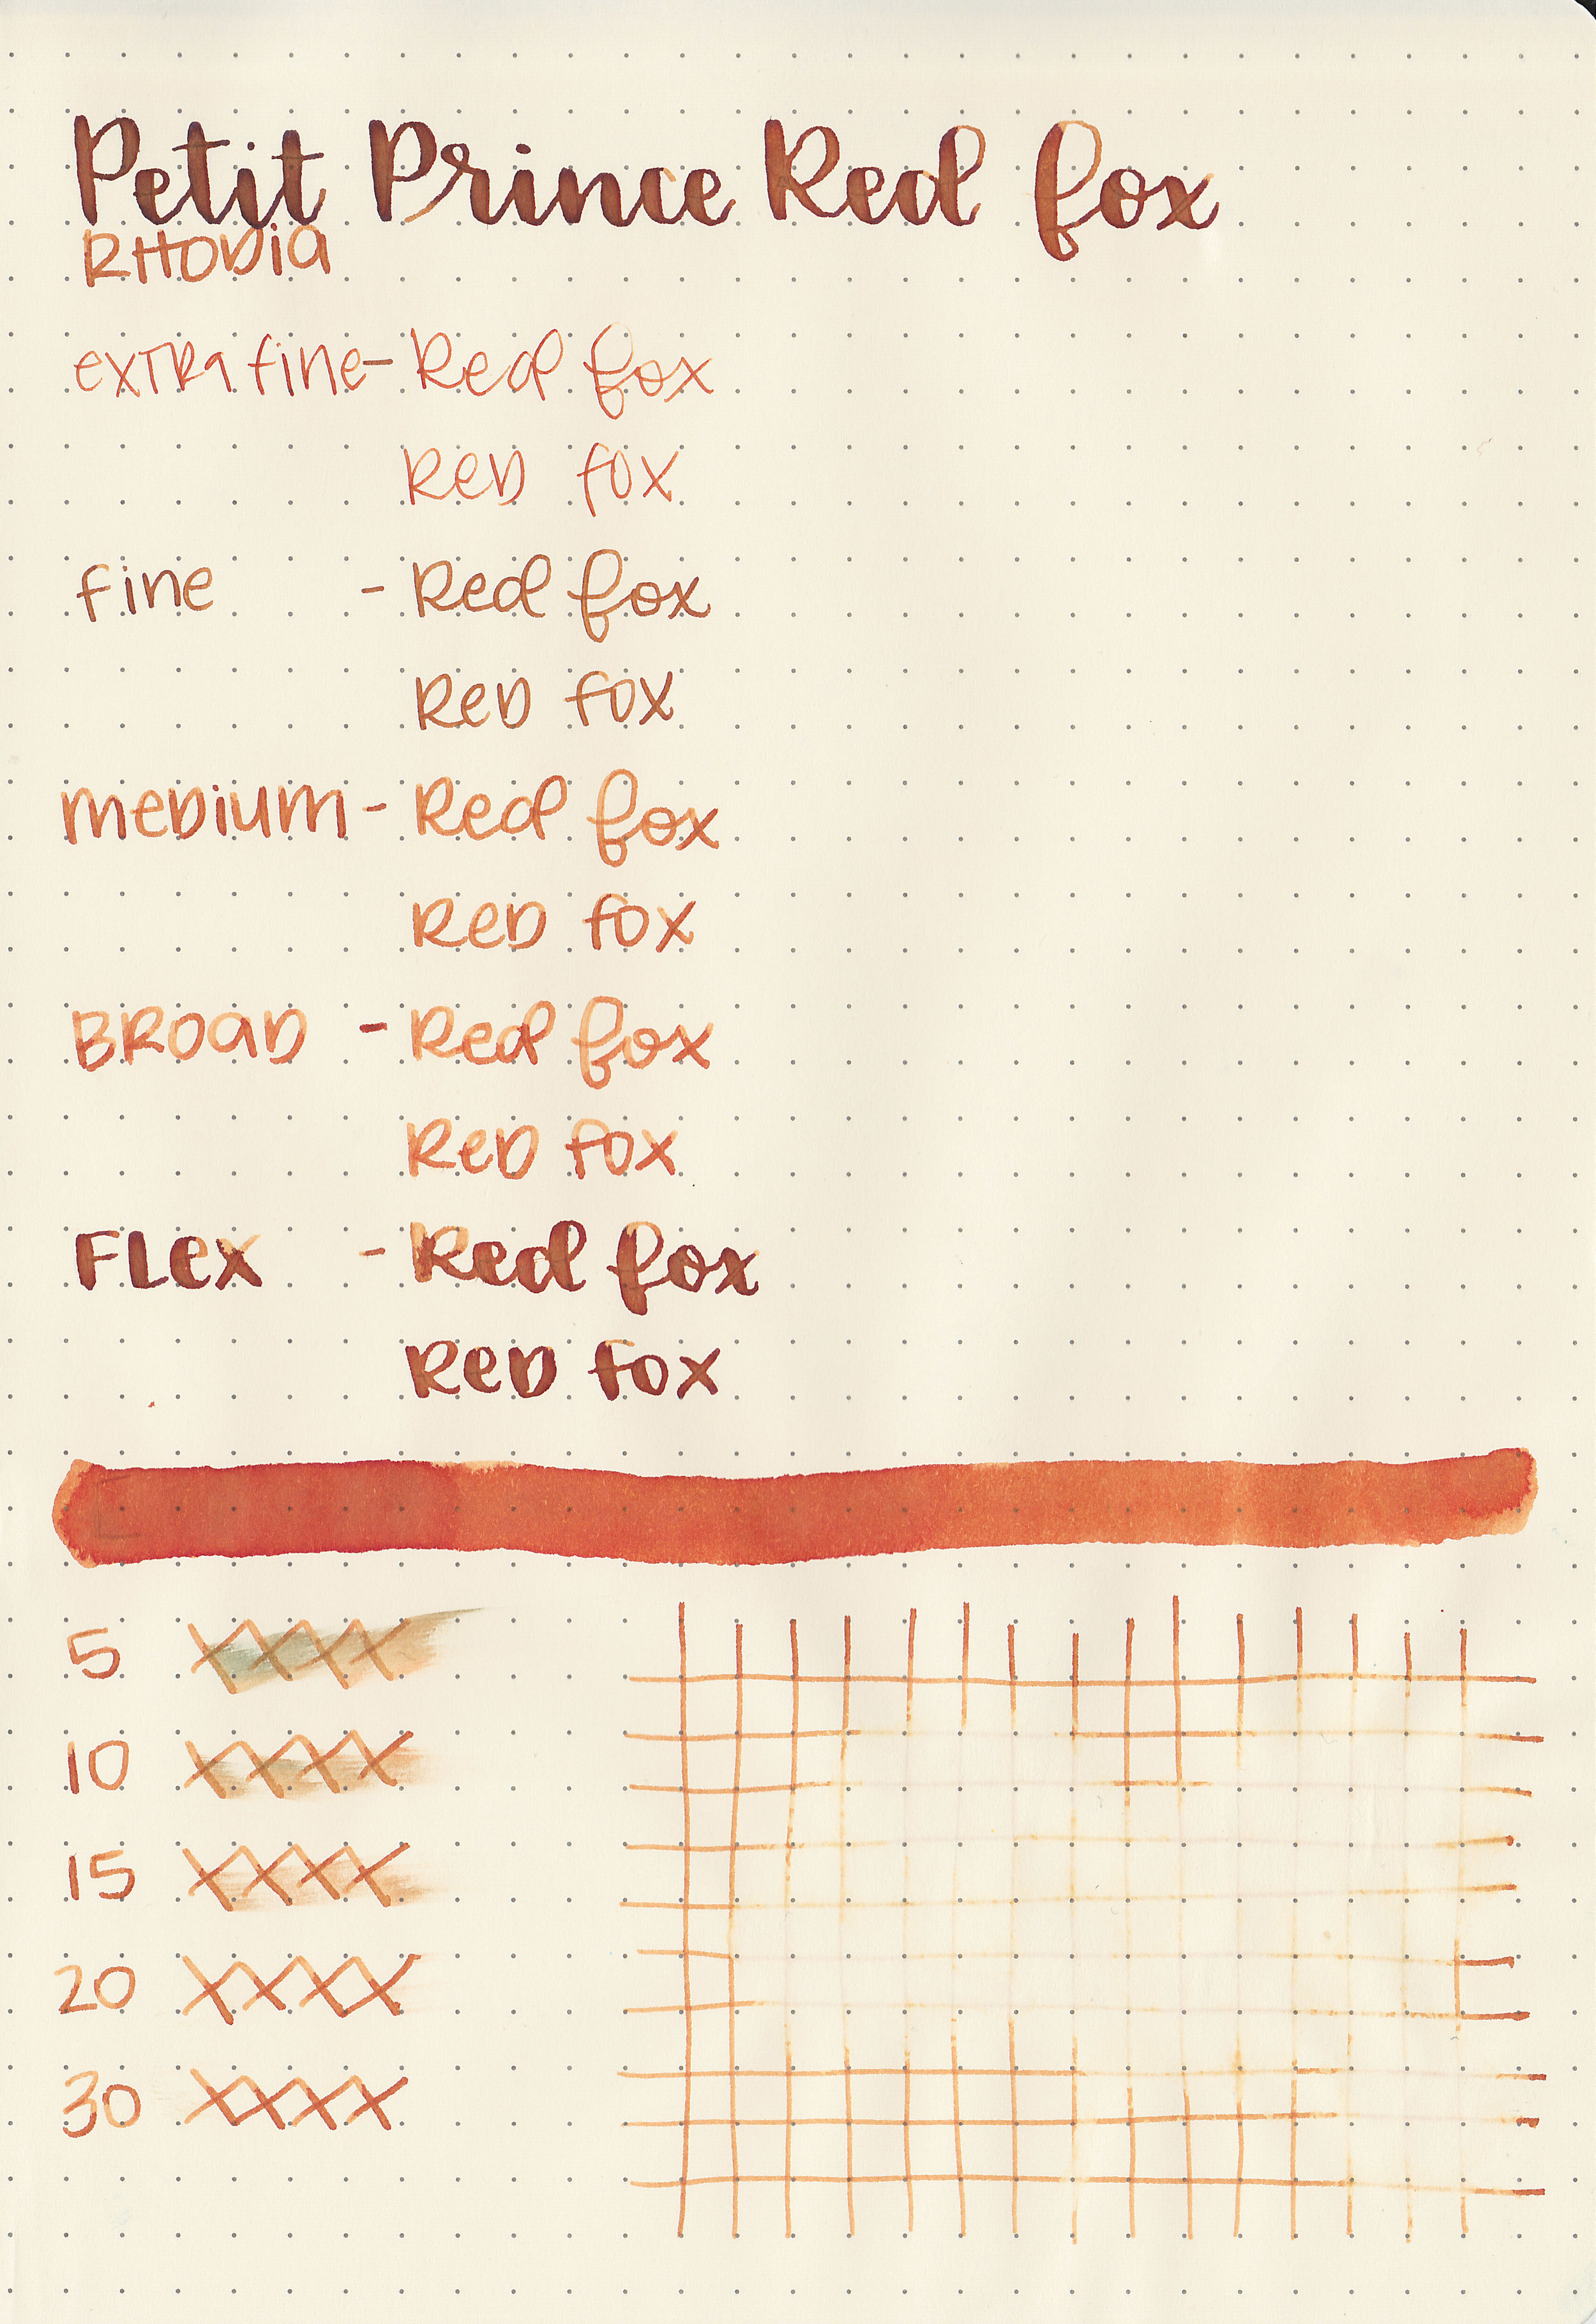 Petit Prince Red fox
RHODia
exTRa fine- Red fox
ReD fox
fine - Red fox
ReD fox
meDium- Red fox
ReD fox
BROaD - Red fox
ReD fox
FLex - Red fox
ReD fox
5 XXXX
10 XXXX
15 XXXX
20 XXXX
30 XXXX